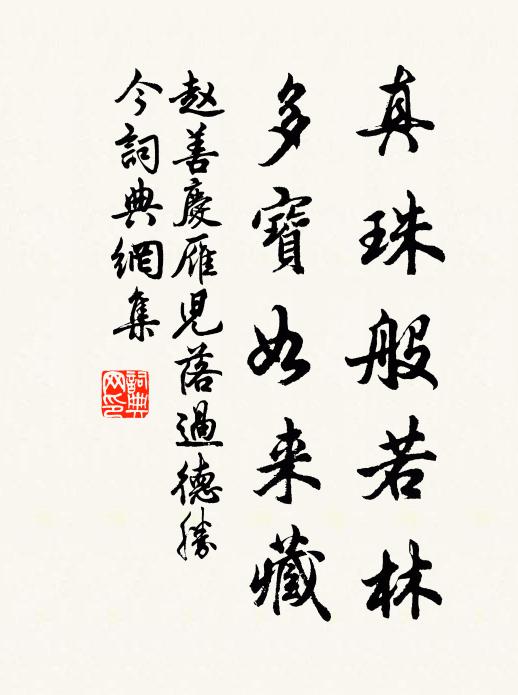 真珠般若林
多寶如来藏
赵善慶雁児落過德勝
今詞典網集
詞典網印